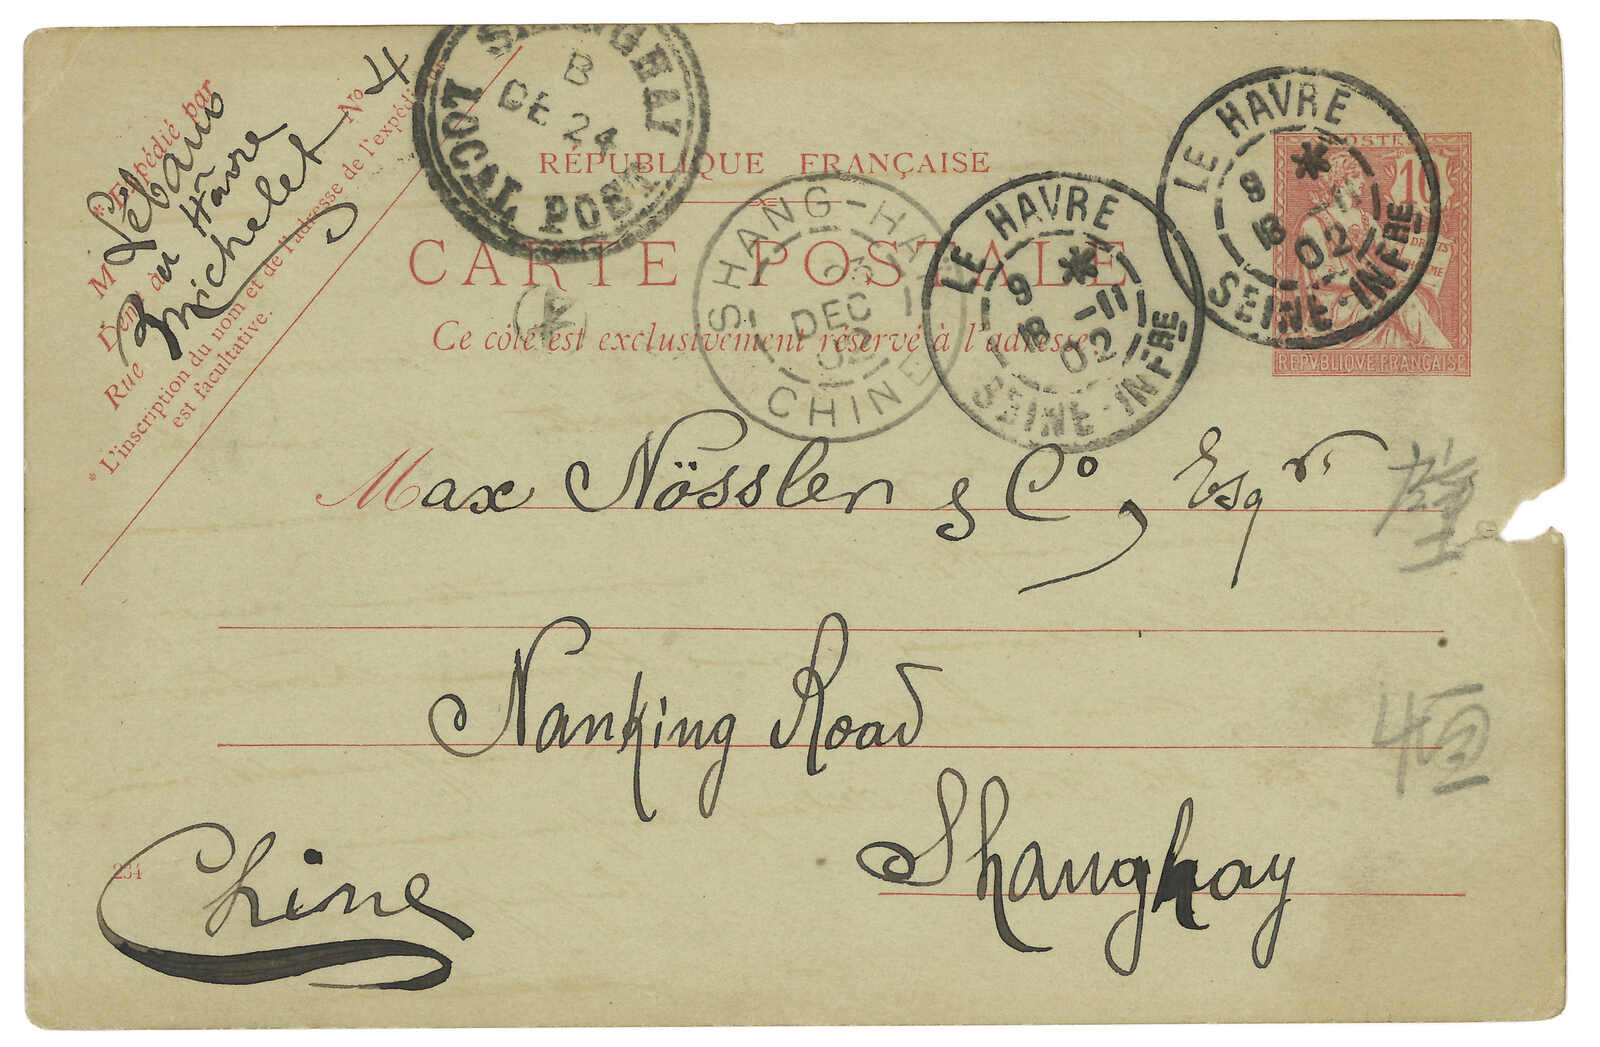 * Expédié par
M Lebaus
Demt à au Havre
Rue Michelet No 4
* L'inscription du nom et de l'adresse de l'expédi
est facultative.
SHANGHAI
B
DE 24
LOCAL POST
RÉPUBLIQUE FRANÇAISE
CARTE POSTALE
Ce côté est exclusivement réservé à l'adresse
SHANG-HAI
DEC
02
CHINE
LE HAVRE
9 *
18 -11
02
SEINE-INFRE
LE HAVRE
8 *
18 -11
02
SEINE-INFRE
POSTE
10
REPVBLIQVE FRANÇAISE
Max Nössler & Co, Esqr
Nanking Road
Shanghay
234
Chine